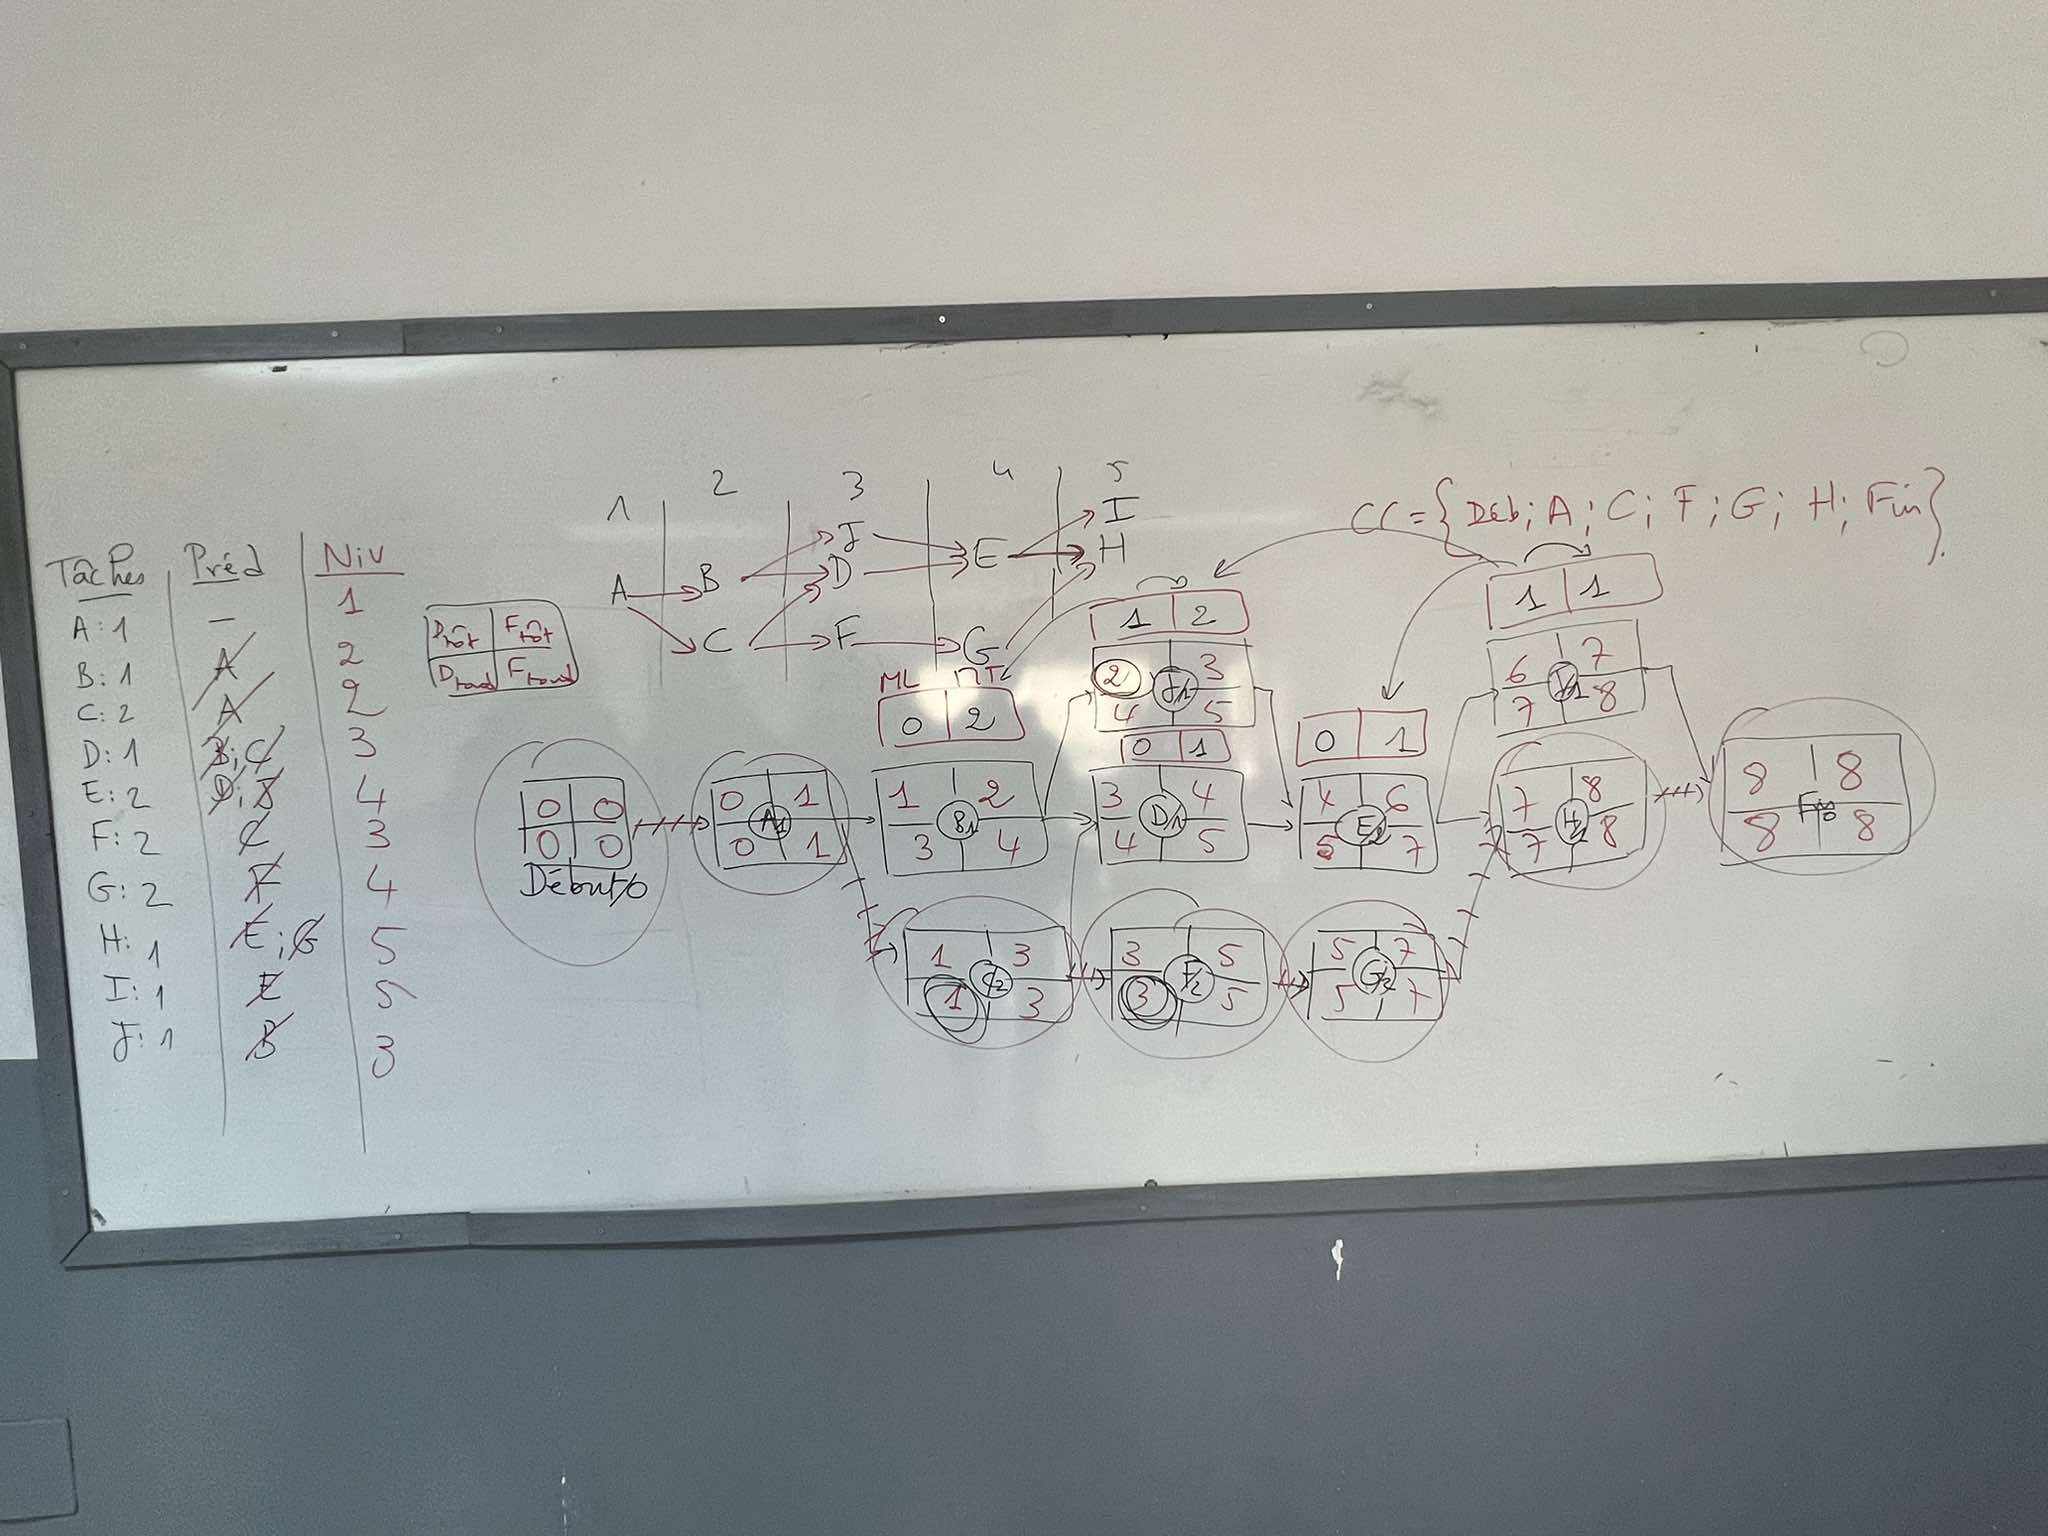 Tâches Préd Niv
A: 1 – 1
B: 1 A 2
C: 2 A 2
D: 1 B; C 3
E: 2 D; J 4
F: 2 C 3
G: 2 F 4
H: 1 E; G 5
I: 1 E 5
J: 1 B 3
Dtôt Ftôt
Dtard Ftard
1 2 3 4 5
J I
A B D E H
C F G
CC = {Déb; A; C; F; G; H; Fin}.
ML MT
0 2
1 2
0 1
0 1
1 1
0 0
0 0
Début/0
0 1
A/1
0 1
1 2
B/1
3 4
2 3
J/1
4 5
3 4
D/1
4 5
4 6
E/2
5 7
6 7
I/1
7 8
7 8
H/1
7 8
8 8
Fin/0
8 8
1 3
C/2
1 3
3 5
F/2
3 5
5 7
G/2
5 7